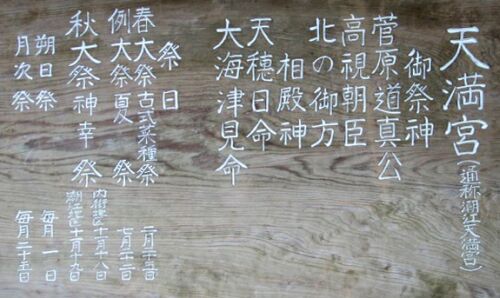 天満宮(通称潮江天満宮)
御祭神
菅原道真公
高視朝臣
北の御方
相殿神
天穂日命
大海津見命
祭日
春大祭古式菜種祭 二月二十五日
例大祭夏祭 七月
秋大祭神幸祭
十一月十八日
潮江 十一月十九日
朔日祭 毎月一日
月次祭 毎月二十五日